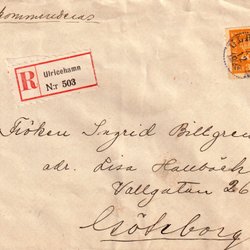 Rekommenderas
R Ulricehamn
N:r 503
Fröken Ingrid Billgren
adr. Lisa Hallbäck
Vallgatan 26
Göteborg